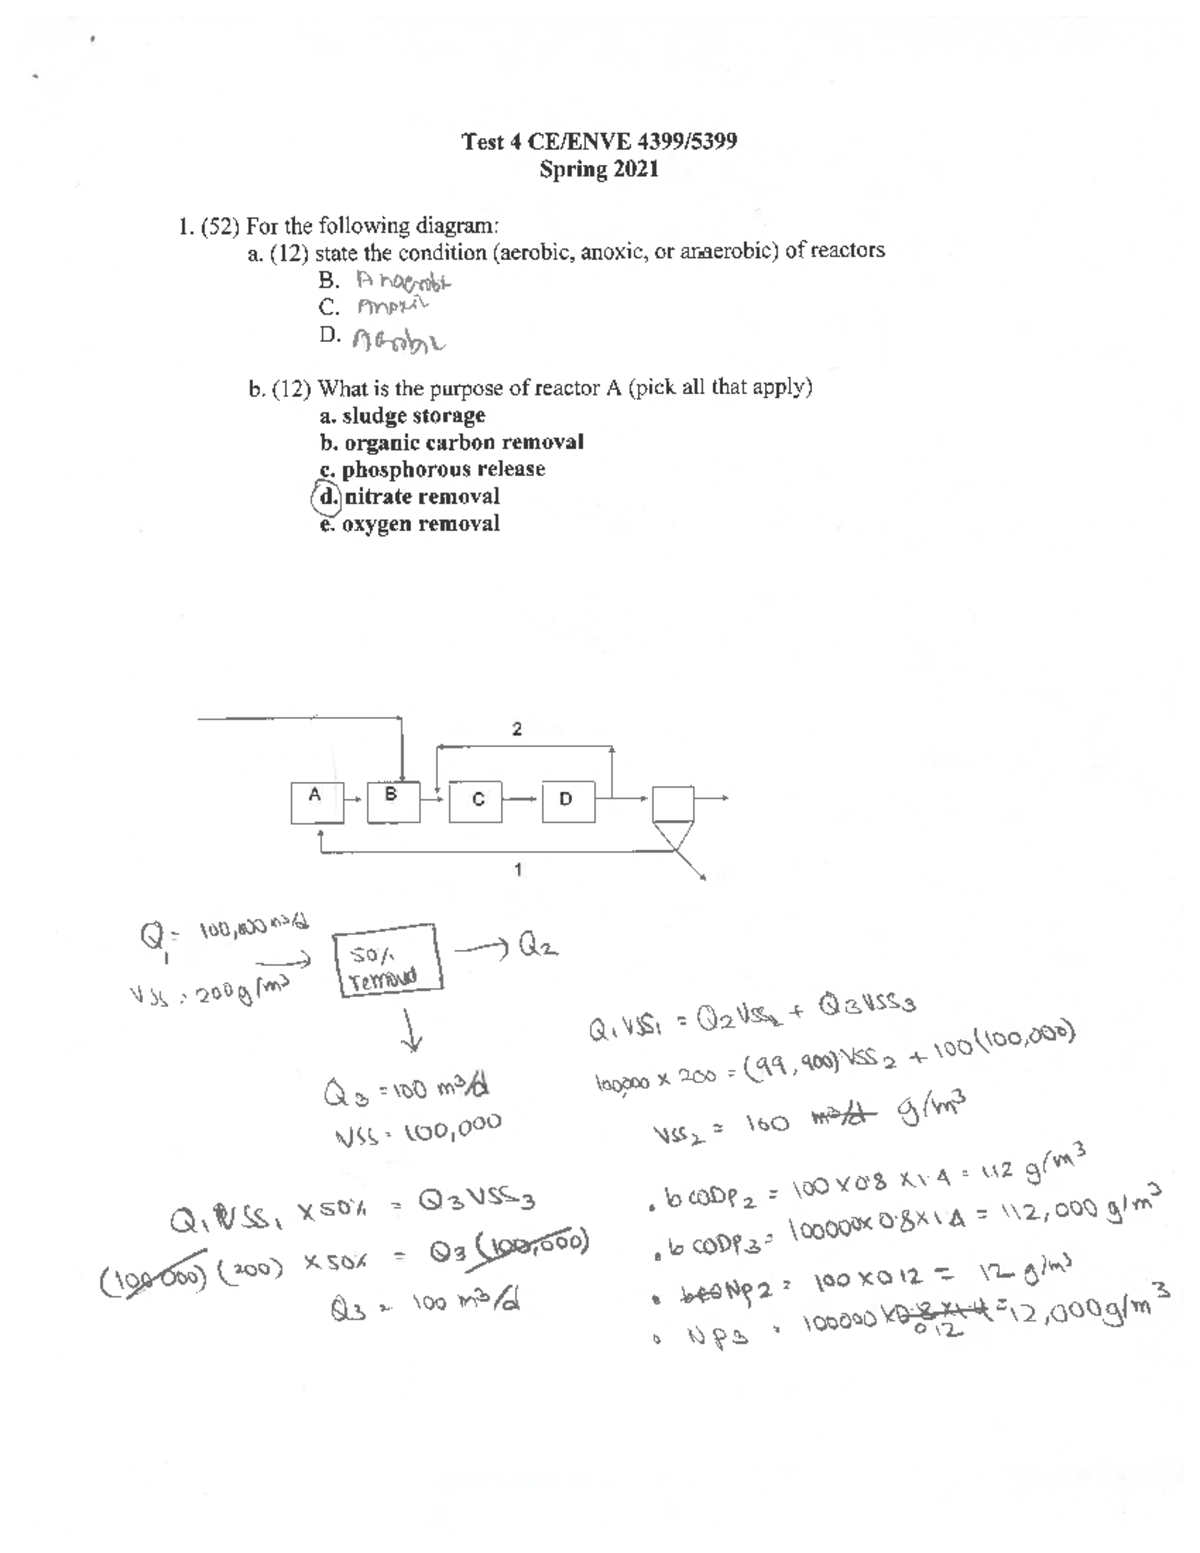 Test 4 CE/ENVE 4399/5399
Spring 2021
1. (52) For the following diagram:
a. (12) state the condition (aerobic, anoxic, or anaerobic) of reactors
B. Anaerobi
C. Anoxic
D. Aerobic
b. (12) What is the purpose of reactor A (pick all that apply)
a. sludge storage
b. organic carbon removal
c. phosphorous release
d. nitrate removal
e. oxygen removal
2
A
B
C
D
1
Q1 = 100,000 m³/d
VSS = 200 g/m³
50%
removal
→ Q2
Q3 = 100 m³/d
VSS = 100,000
Q1 VSS1 x 50% = Q3 VSS3
(100,000) (200) x 50% = Q3 (100,000)
Q3 = 100 m³/d
Q1 VSS1 = Q2 VSS2 + Q3 VSS3
100,000 x 200 = (99,900) VSS2 + 100 (100,000)
VSS2 = 100 m³/d g/m³
. bCODP2 = 100 x 0.8 x 1.4 = 112 g/m³
. bCODP3 = 100000 x 0.8 x 1.4 = 112,000 g/m³
• NP2 = 100 x 0.12 = 12 g/m³
• NP3 = 100000 x 0.8 x 1.4 = 12,000 g/m³
0.12